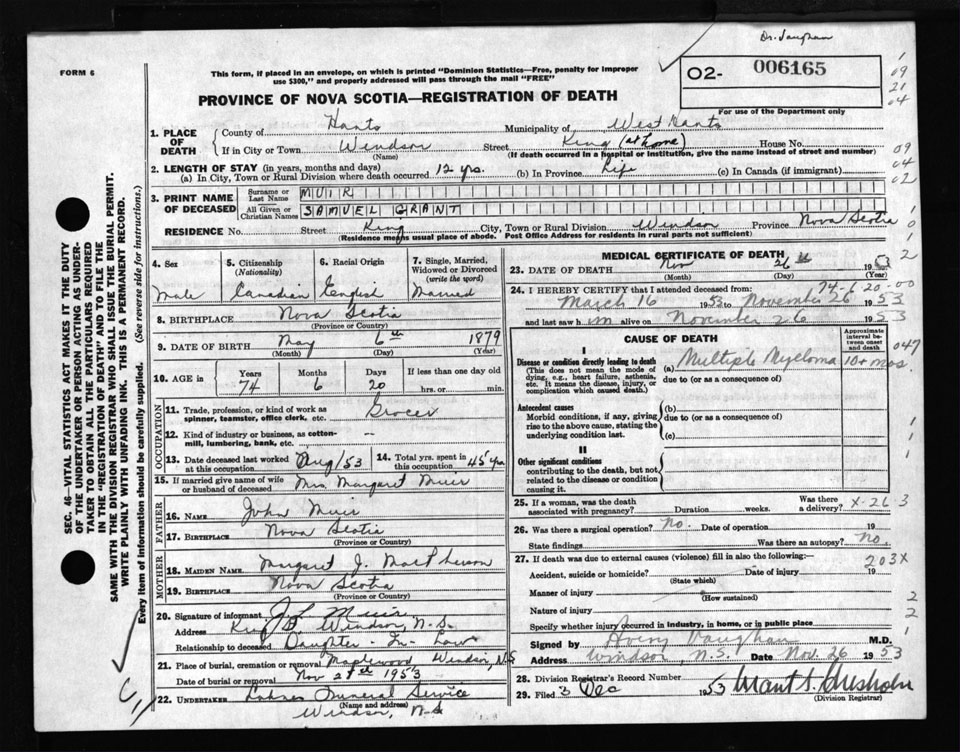 Dr. Vaughan
FORM 6
This form, if placed in an envelope, on which is printed "Dominion Statistics—Free, penalty for improper
use $300," and properly addressed will pass through the mail "FREE"
O2- 006165
For use of the Department only
PROVINCE OF NOVA SCOTIA—REGISTRATION OF DEATH
1. PLACE OF DEATH
County of Hants Municipality of West Hants
If in City or Town Windsor Street King (at home) House No.
(Name) (If death occurred in a hospital or institution, give the name instead of street and number)
2. LENGTH OF STAY (in years, months and days)
(a) In City, Town or Rural Division where death occurred 12 yrs. (b) In Province Life (c) In Canada (if immigrant)
3. PRINT NAME OF DECEASED
Surname or Last Name MUIR
All Given or Christian Names SAMUEL GRANT
RESIDENCE No. Street King City, Town or Rural Division Windsor Province Nova Scotia
(Residence means usual place of abode. Post Office Address for residents in rural parts not sufficient)
4. Sex Male
5. Citizenship (Nationality) Canadian
6. Racial Origin English
7. Single, Married, Widowed or Divorced (write the word) Married
8. BIRTHPLACE Nova Scotia
(Province or Country)
9. DATE OF BIRTH May 6th 1879
(Month) (Day) (Year)
10. AGE in Years Months Days If less than one day old
74 6 20 hrs. or min.
OCCUPATION
11. Trade, profession, or kind of work as spinner, teamster, office clerk, etc. Grocer
12. Kind of industry or business, as cotton-mill, lumbering, bank, etc. —
13. Date deceased last worked at this occupation Aug/53
14. Total yrs. spent in this occupation 45 yrs
15. If married give name of wife or husband of deceased Mrs Margaret Muir
FATHER
16. NAME John Muir
17. BIRTHPLACE Nova Scotia
(Province or Country)
MOTHER
18. MAIDEN NAME Margaret J.
19. BIRTHPLACE Nova Scotia
(Province or Country)
20. Signature of informant Muir
Address King St Windsor, N.S.
Relationship to deceased Daughter-In-Law
21. Place of burial, cremation or removal Maplewood Windsor, N.S
Date of burial or removal Nov 1953
22. UNDERTAKER Funeral Service
(Name and address)
Windsor, N.S
MEDICAL CERTIFICATE OF DEATH
23. DATE OF DEATH Nov 26th 1953
(Month) (Day)
74-6-20-00
24. I HEREBY CERTIFY that I attended deceased from:
March 16 1953 to November 26 1953
and last saw him alive on November 26 1953
CAUSE OF DEATH
Approximate interval between onset and death
I
Disease or condition directly leading to death
(This does not mean the mode of dying, e.g., heart failure, asthenia, etc. It means the disease, injury, or complication which caused death.)
(a) Multiple Myeloma 10+ mos.
due to (or as a consequence of)
047
Antecedent causes
Morbid conditions, if any, giving rise to the above cause, stating the underlying condition last.
(b)
due to (or as a consequence of)
(c)
II
Other significant conditions
contributing to the death, but not related to the disease or condition causing it.
25. If a woman, was the death associated with pregnancy? Duration weeks. Was there a delivery? X-26-3
26. Was there a surgical operation? No. Date of operation 19
State findings Was there an autopsy? No.
27. If death was due to external causes (violence) fill in also the following:
203X
Accident, suicide or homicide? Date of injury 19
(State which)
Manner of injury
(How sustained)
Nature of injury
Specify whether injury occurred in industry, in home, or in public place
Signed by Avery Vaughan M.D.
Address Windsor, N.S. Date Nov. 26 1953
28. Division Registrar's Record Number
29. Filed 3 Dec 1953 Grant S. Chisholm
(Division Registrar)
SEC. 46—VITAL STATISTICS ACT MAKES IT THE DUTY
OF THE UNDERTAKER OR PERSON ACTING AS UNDER-
TAKER TO OBTAIN ALL THE PARTICULARS REQUIRED
IN THE "REGISTRATION OF DEATH" AND TO FILE THE
SAME WITH THE DIVISION REGISTRAR WHO SHALL ISSUE THE BURIAL PERMIT.
WRITE PLAINLY WITH UNFADING INK. THIS IS A PERMANENT RECORD.
Every item of information should be carefully supplied. (See reverse side for instructions.)
09
21
04
09
04
02